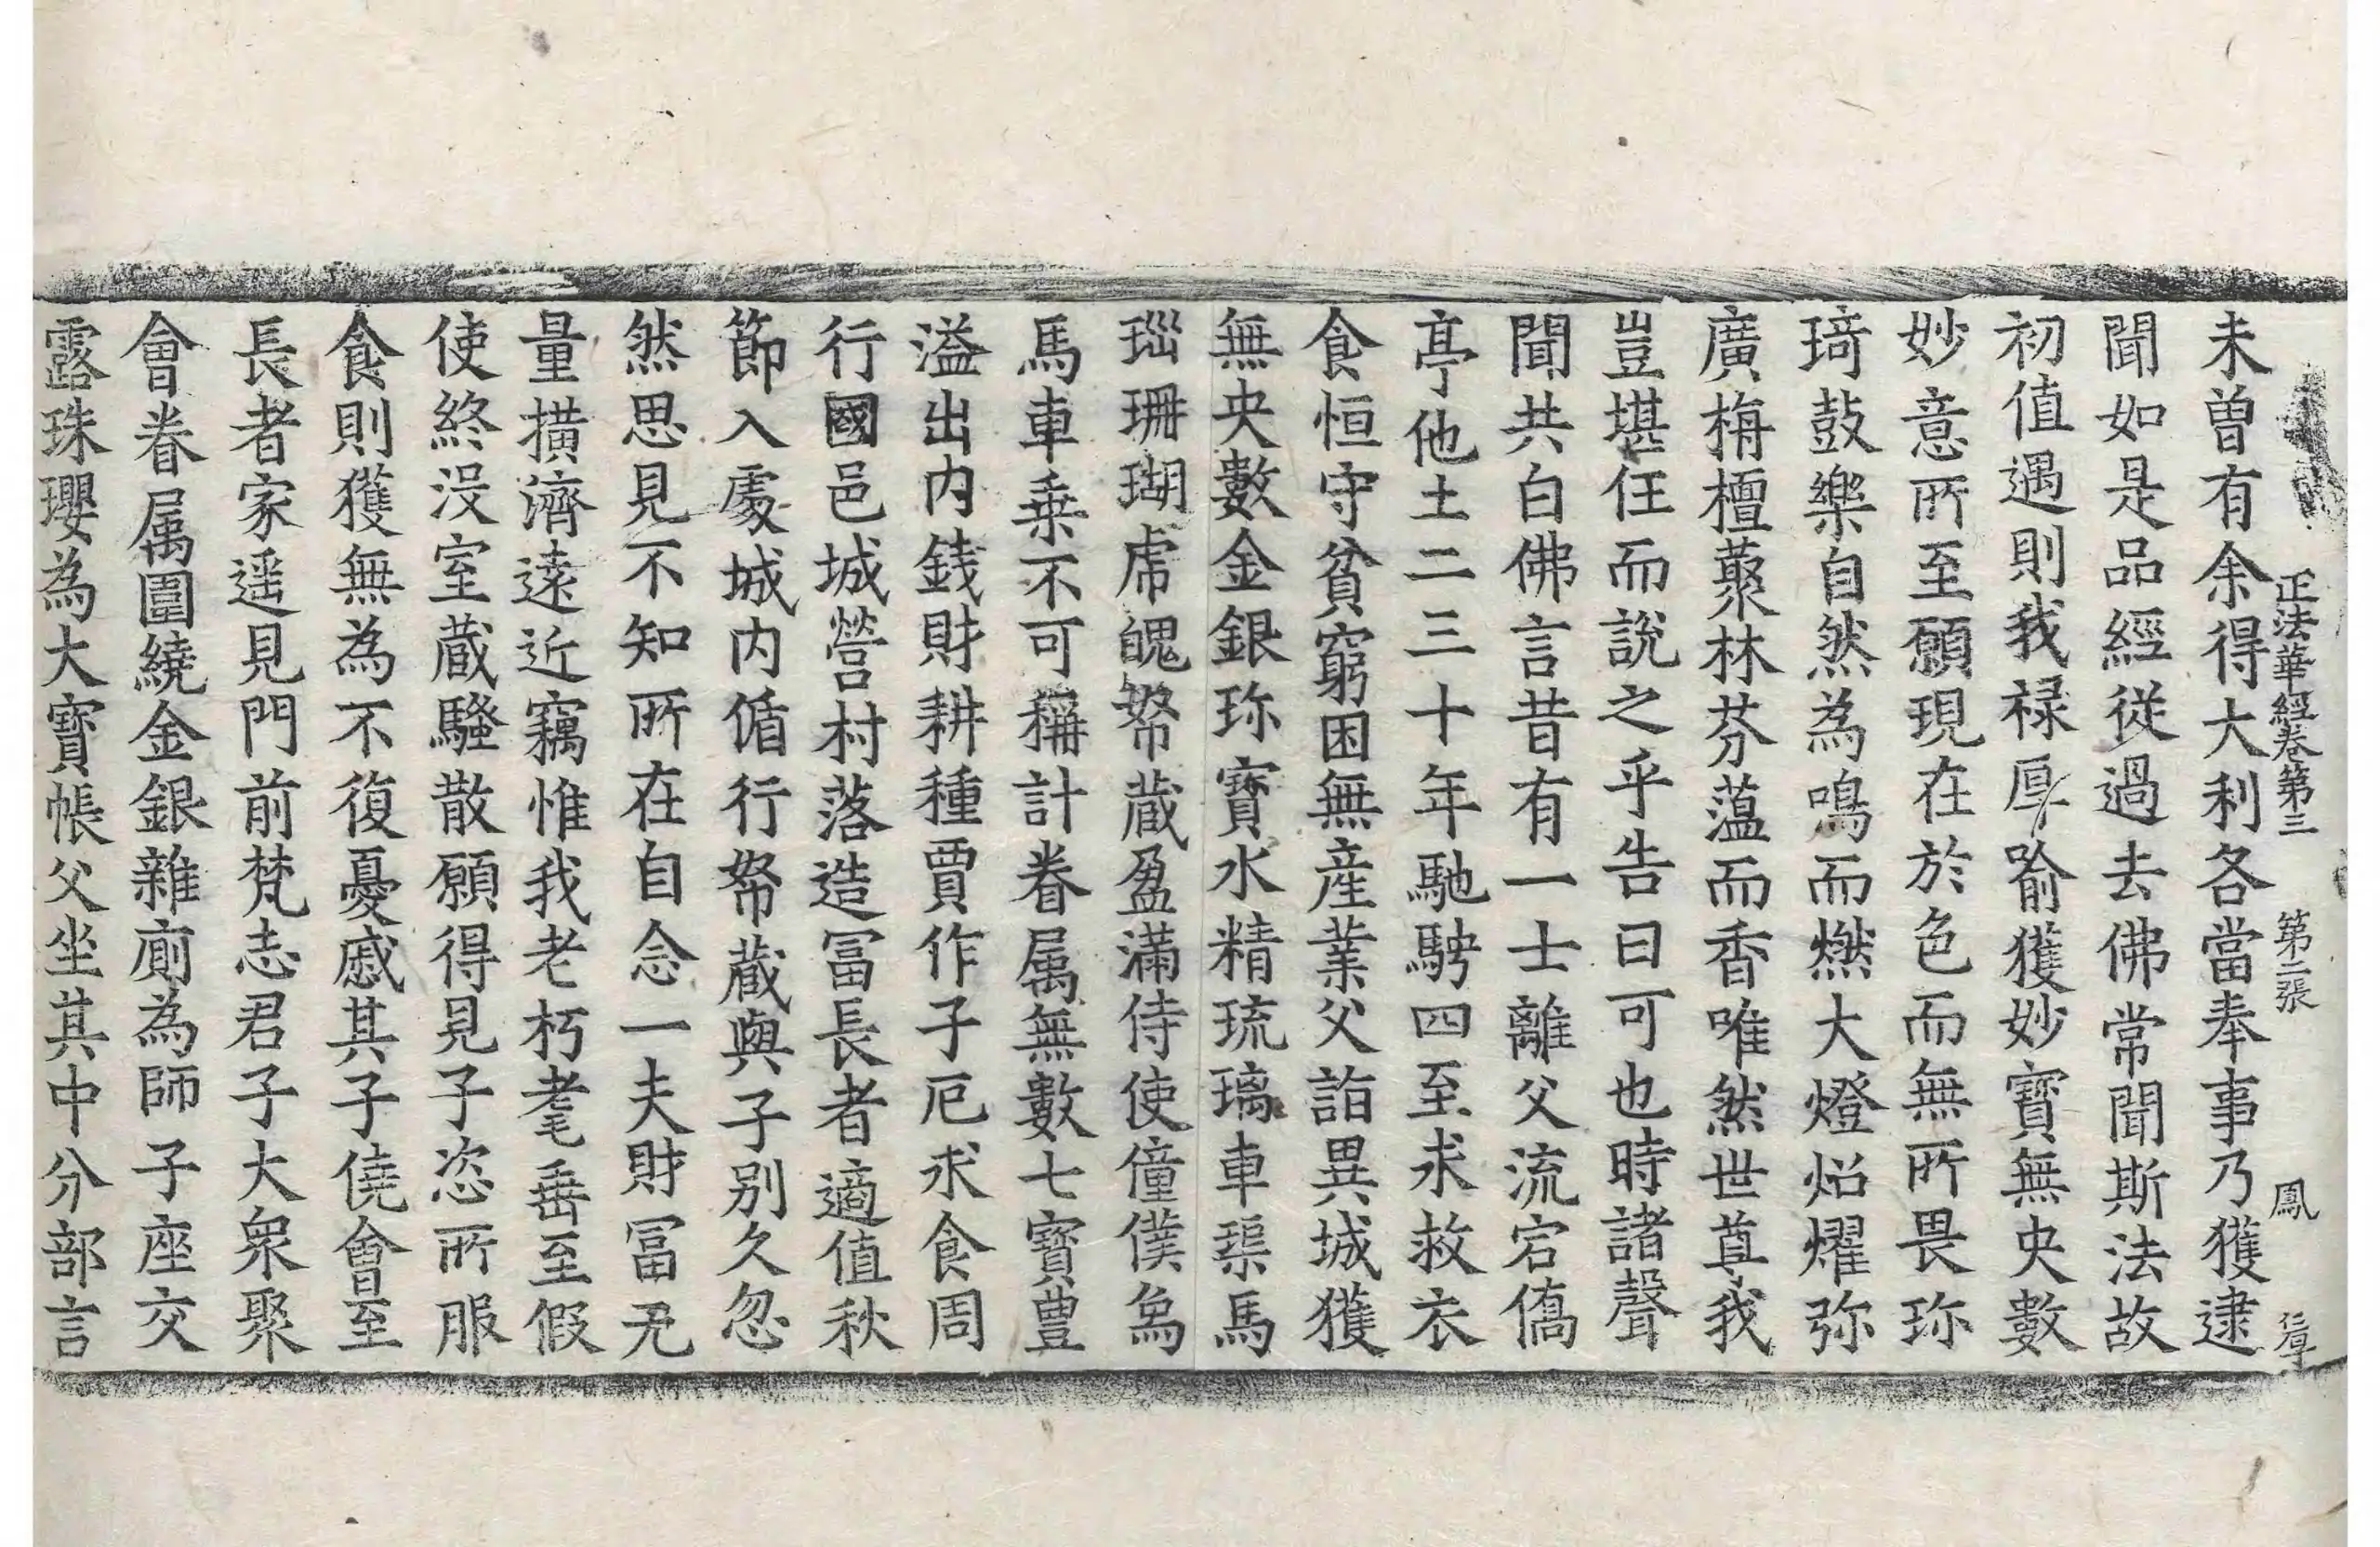 正法華經卷第三 第二張 鳳
未曾有余得大利各當奉事乃獲逮
聞如是品經從過去佛常聞斯法故
初值遇則我禄厚喻獲妙寶無央數
妙意所至願現在於色而無所畏珎
琦鼓樂自然為鳴而燃大燈炤燿弥
廣栴檀藂林芬薀而香唯然世尊我
豈堪任而說之乎告曰可也時諸聲
聞共白佛言昔有一士離父流宕僑
亭他土二三十年馳騁四至求救衣
食恒守貧窮困無産業父詣異城獲
無央數金銀珎寶水精琉璃車璖馬
瑙珊瑚虎魄帑蔵盈滿侍使僮僕象
馬車乗不可稱計眷属無數七寶豊
溢出内錢財耕種賈作子厄求食周
行國邑城營村落造冨長者適值秋
節入處城内循行帑蔵與子别久忽
然思見不知所在自念一夫財冨无
量擴濟遠近竊惟我老朽耄垂至假
使終没室蔵騷散願得見子恣所服
食則獲無為不復憂慼其子僥會至
長者家遥見門前梵志君子大衆聚
會眷属圍繞金銀雜廁為師子座交
露珠瓔為大寶帳父坐其中分部言